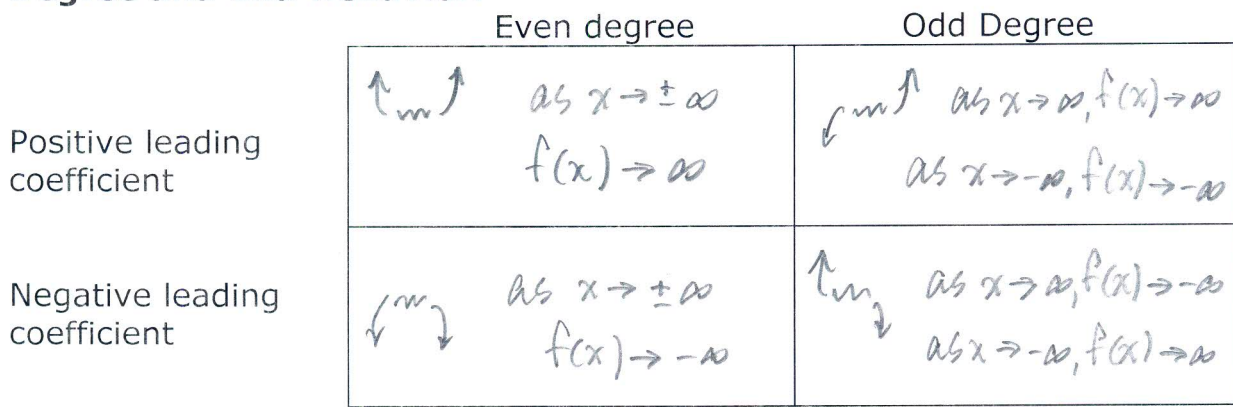 Even degree
Odd Degree
Positive leading
coefficient
as x → ± ∞
f(x) → ∞
as x → ∞, f(x) → ∞
as x → -∞, f(x) → -∞
Negative leading
coefficient
as x → ± ∞
f(x) → -∞
as x → ∞, f(x) → -∞
as x → -∞, f(x) → ∞